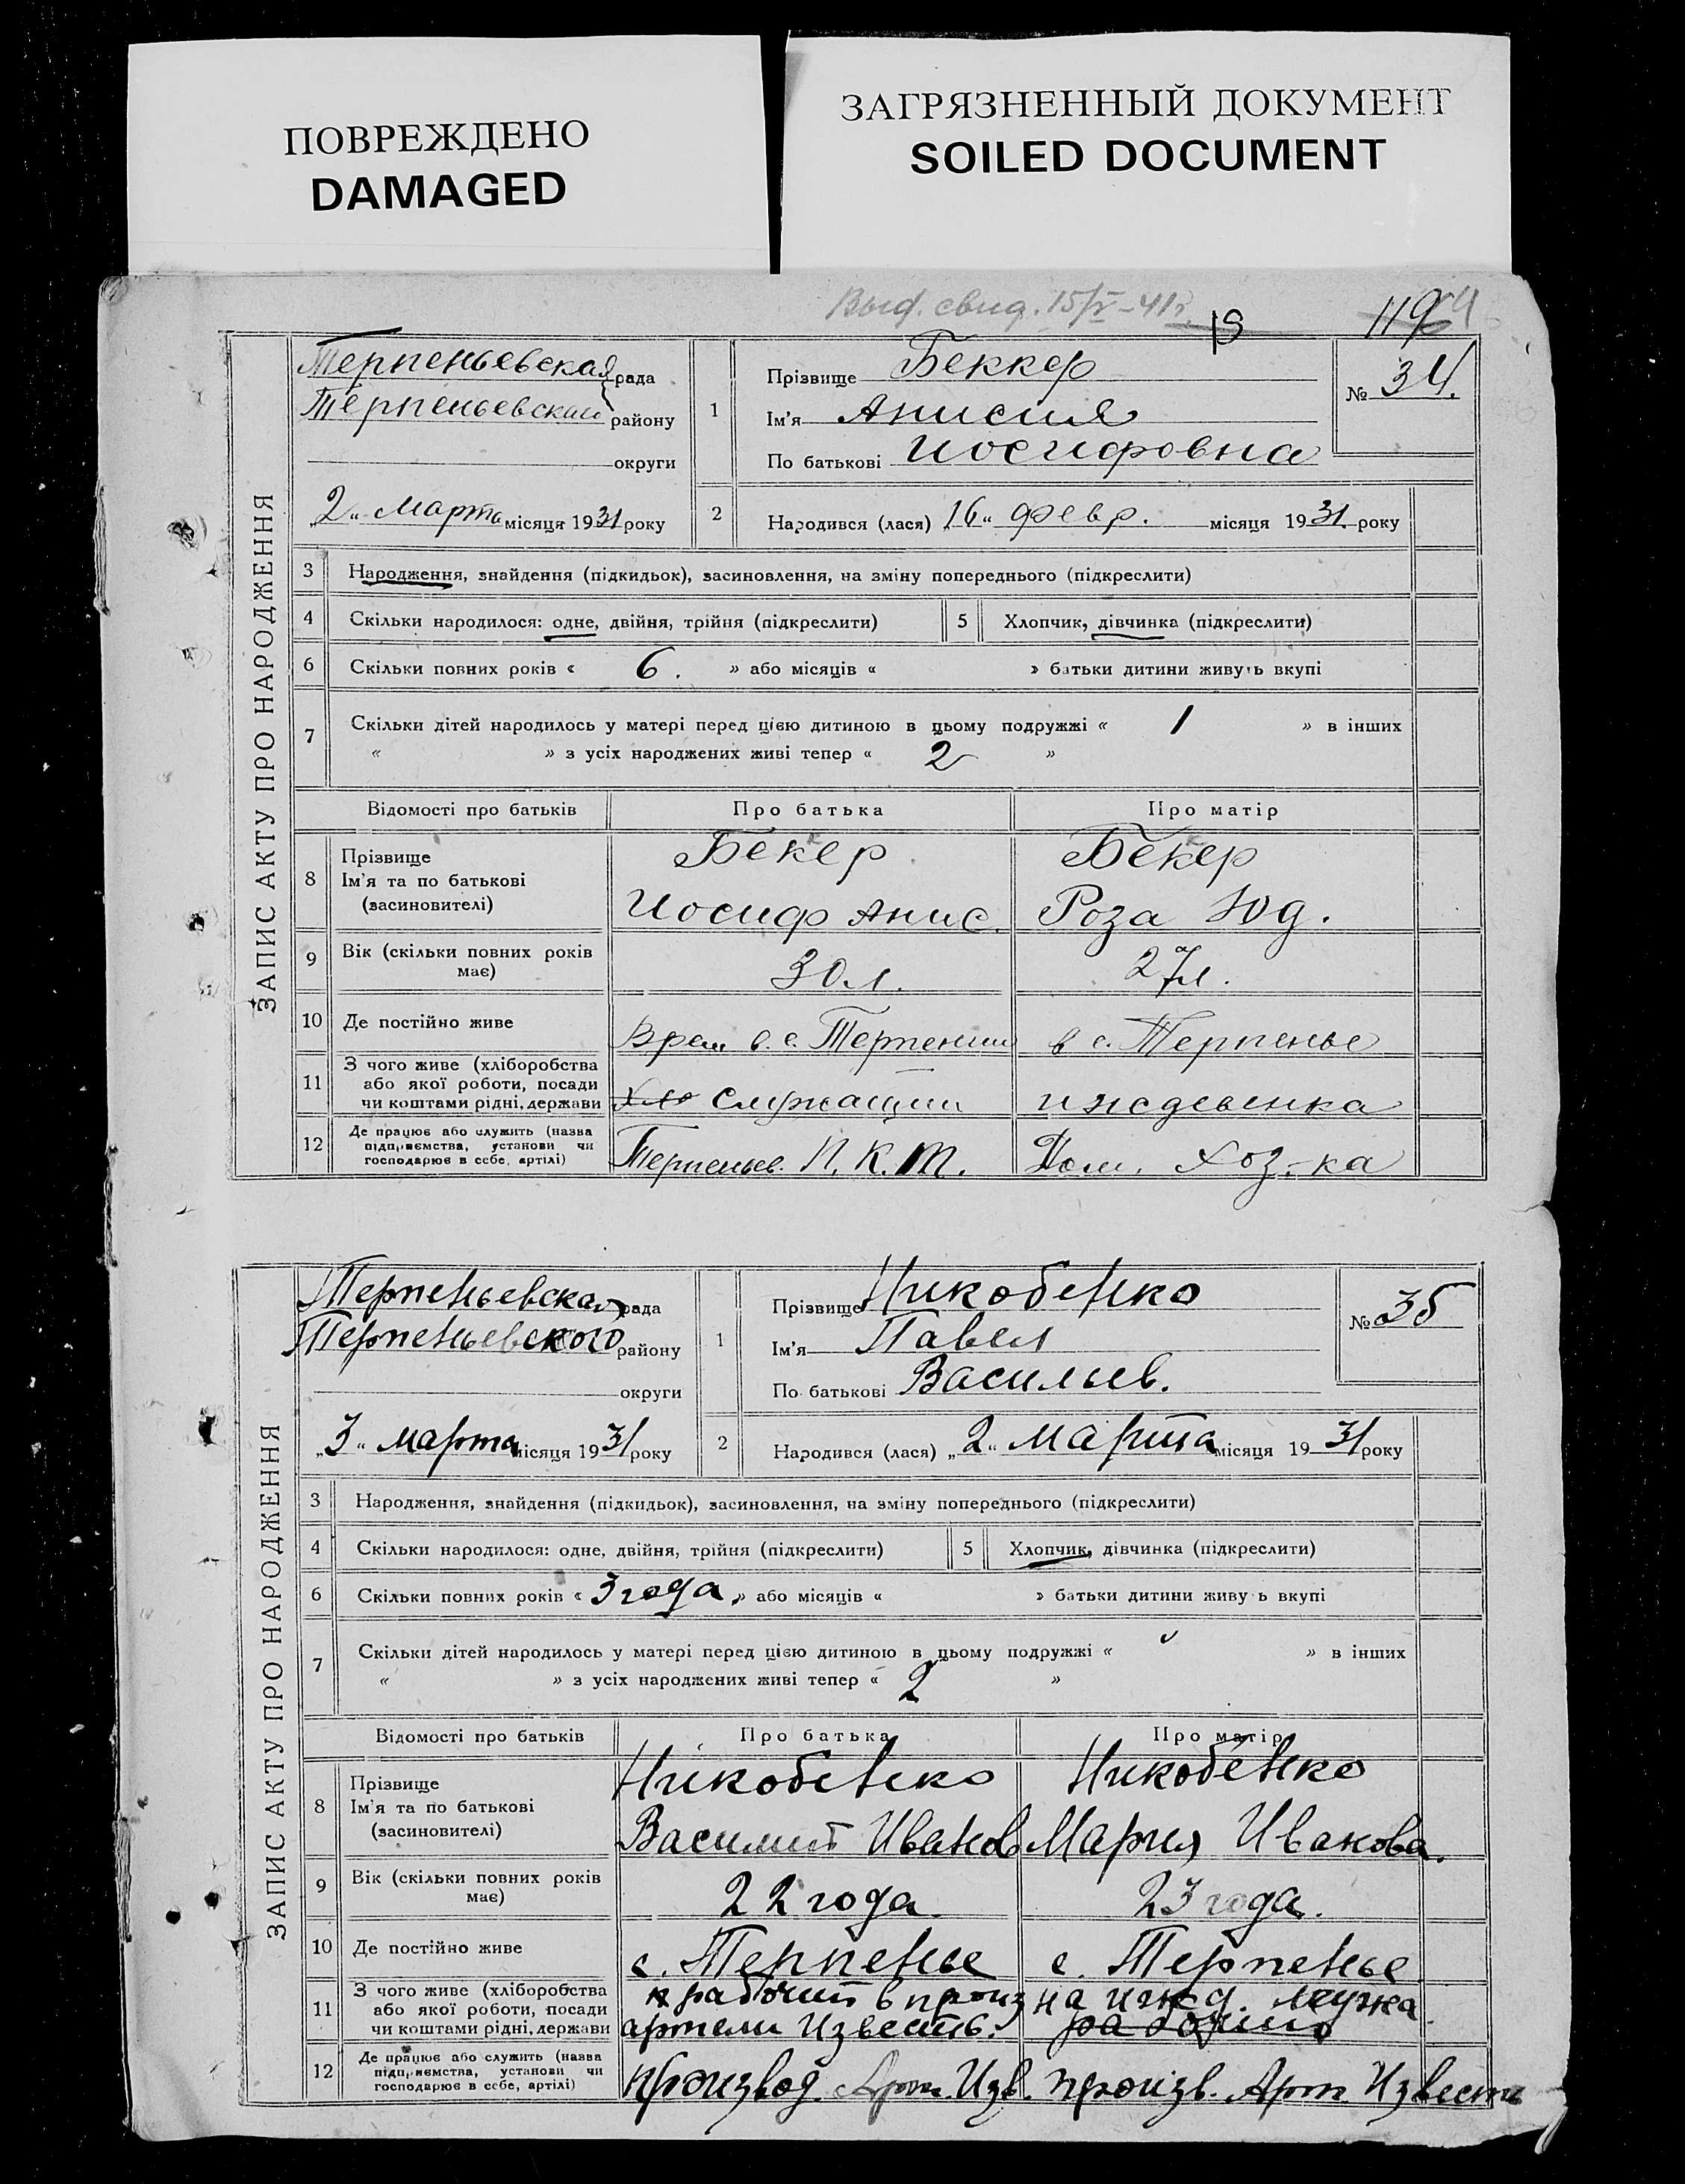 ПОВРЕЖДЕНО
DAMAGED
ЗАГРЯЗНЕННЫЙ ДОКУМЕНТ
SOILED DOCUMENT
Выд. свид. 15/V-41г.
19
119
ЗАПИС АКТУ ПРО НАРОДЖЕННЯ
Терпеньевская рада
Терпеньевский району
округи
„2“ Марта місяця 1931 року
1
Прізвище Беккер
Ім'я Анисия
По батькові Иосифовна
№ 34.
2
Народився (лася) „16“ Февр. місяця 1931 року
3 Народження, знайдення (підкидьок), засиновлення, на зміну попереднього (підкреслити)
4 Скільки народилося: одне, двійня, трійня (підкреслити)
5 Хлопчик, дівчинка (підкреслити)
6 Скільки повних років « 6. » або місяців « » батьки дитини живуть вкупі
7 Скільки дітей народилось у матері перед цією дитиною в цьому подружжі « 1 » в інших
« » з усіх народжених живі тепер « 2 »
Відомості про батьків Про батька Про матір
8 Прізвище
Ім'я та по батькові
(засиновителі)
Бекер
Иосиф Анис.
Бекер
Роза Юд.
9 Вік (скільки повних років
має)
30 л.
27 л.
10 Де постійно живе
Врем. в. с. Терпении
в с. Терпенье
11 З чого живе (хліборобства
або якої роботи, посади
чи коштами рідні, держави
Служащий
иждевенка
12 Де працює або служить (назва
підприємства, установи чи
господарює в себе, артілі)
Терпеньев. П. К. Т.
Дом. хоз-ка
ЗАПИС АКТУ ПРО НАРОДЖЕННЯ
Терпеньевская рада
Терпеньевского району
округи
„3“ марта місяця 1931 року
1
Прізвище Никобенко
Ім'я Павел
По батькові Васильев.
№ 35
2
Народився (лася) „2“ марта місяця 1931 року
3 Народження, знайдення (підкидьок), засиновлення, на зміну попереднього (підкреслити)
4 Скільки народилося: одне, двійня, трійня (підкреслити)
5 Хлопчик, дівчинка (підкреслити)
6 Скільки повних років « 3 года » або місяців « » батьки дитини живуь вкупі
7 Скільки дітей народилось у матері перед цією дитиною в цьому подружжі « » в інших
« » з усіх народжених живі тепер « 2 »
Відомості про батьків Про батька Про матір
8 Прізвище
Ім'я та по батькові
(засиновителі)
Никобенко
Василий Иванов
Никобенко
Мария Иванова.
9 Вік (скільки повних років
має)
22 года
23 года.
10 Де постійно живе
с. Терпенье
с. Терпенье
11 З чого живе (хліборобства
або якої роботи, посади
чи коштами рідні, держави
рабочий в произ
артели Известь.
на ижд. мужа
рабочий
12 Де працює або служить (назва
підприємства, установи чи
господарює в себе, артілі)
производ. Арт. Изв.
произв. Арт. Извест